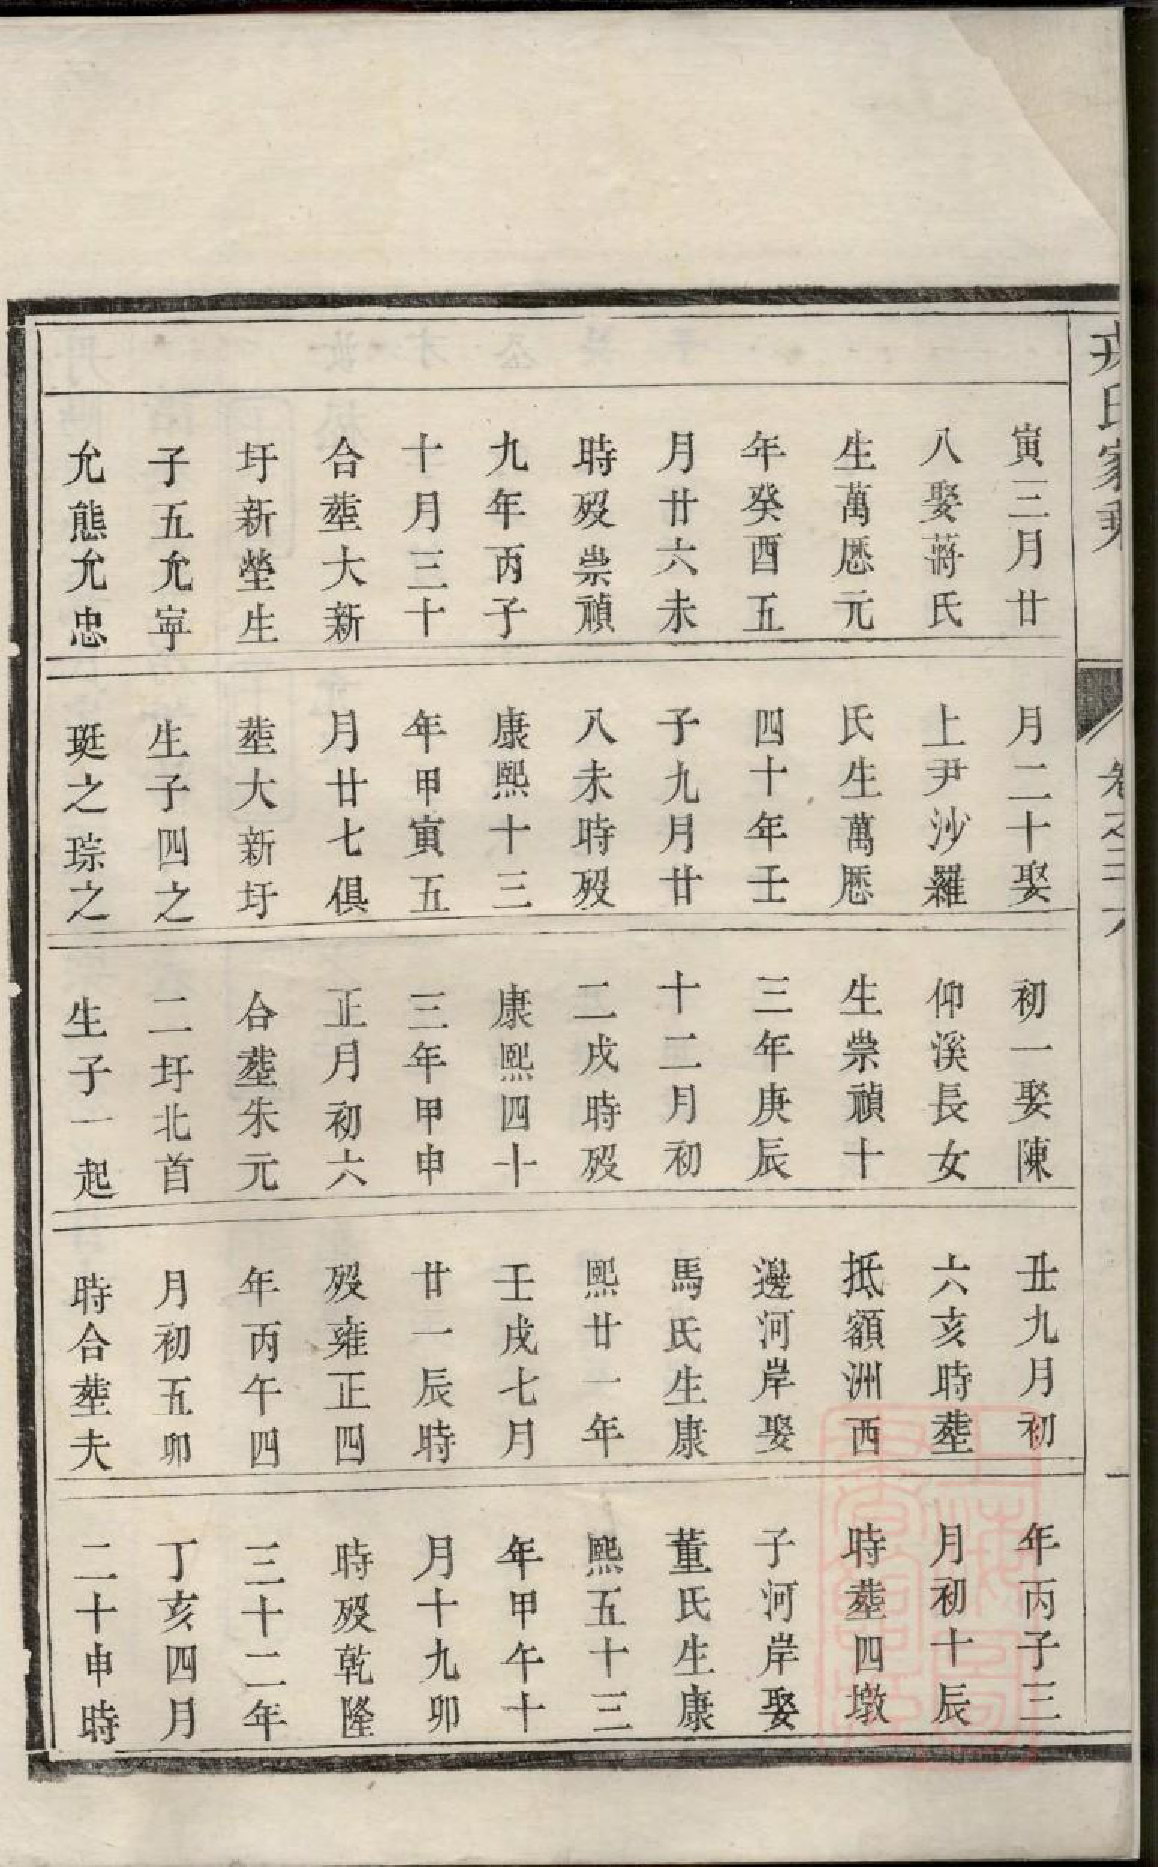 氏家乘
卷之三
寅三月廿
八娶蔣氏
生萬厯元
年癸酉五
月廿六未
時殁崇禎
九年丙子
十月三十
合塟大新
圩新塋生
子五允寧
允態允忠
月二十娶
上尹沙羅
氏生萬厯
四十年壬
子九月廿
八未時殁
康熙十三
年甲寅五
月廿七俱
塟大新圩
生子四之
珽之琮之
初一娶陳
仰溪長女
生崇禎十
三年庚辰
十二月初
二戌時殁
康熙四十
三年甲申
正月初六
合塟朱元
二圩北首
生子一起
丑九月初
六亥時塟
抵額洲西
邊河岸娶
馬氏生康
熙廿一年
壬戌七月
廿一辰時
殁雍正四
年丙午四
月初五卯
時合塟夫
年丙子三
月初十辰
時塟四墩
子河岸娶
董氏生康
熙五十三
年甲午十
月十九卯
時殁乾隆
三十二年
丁亥四月
二十申時